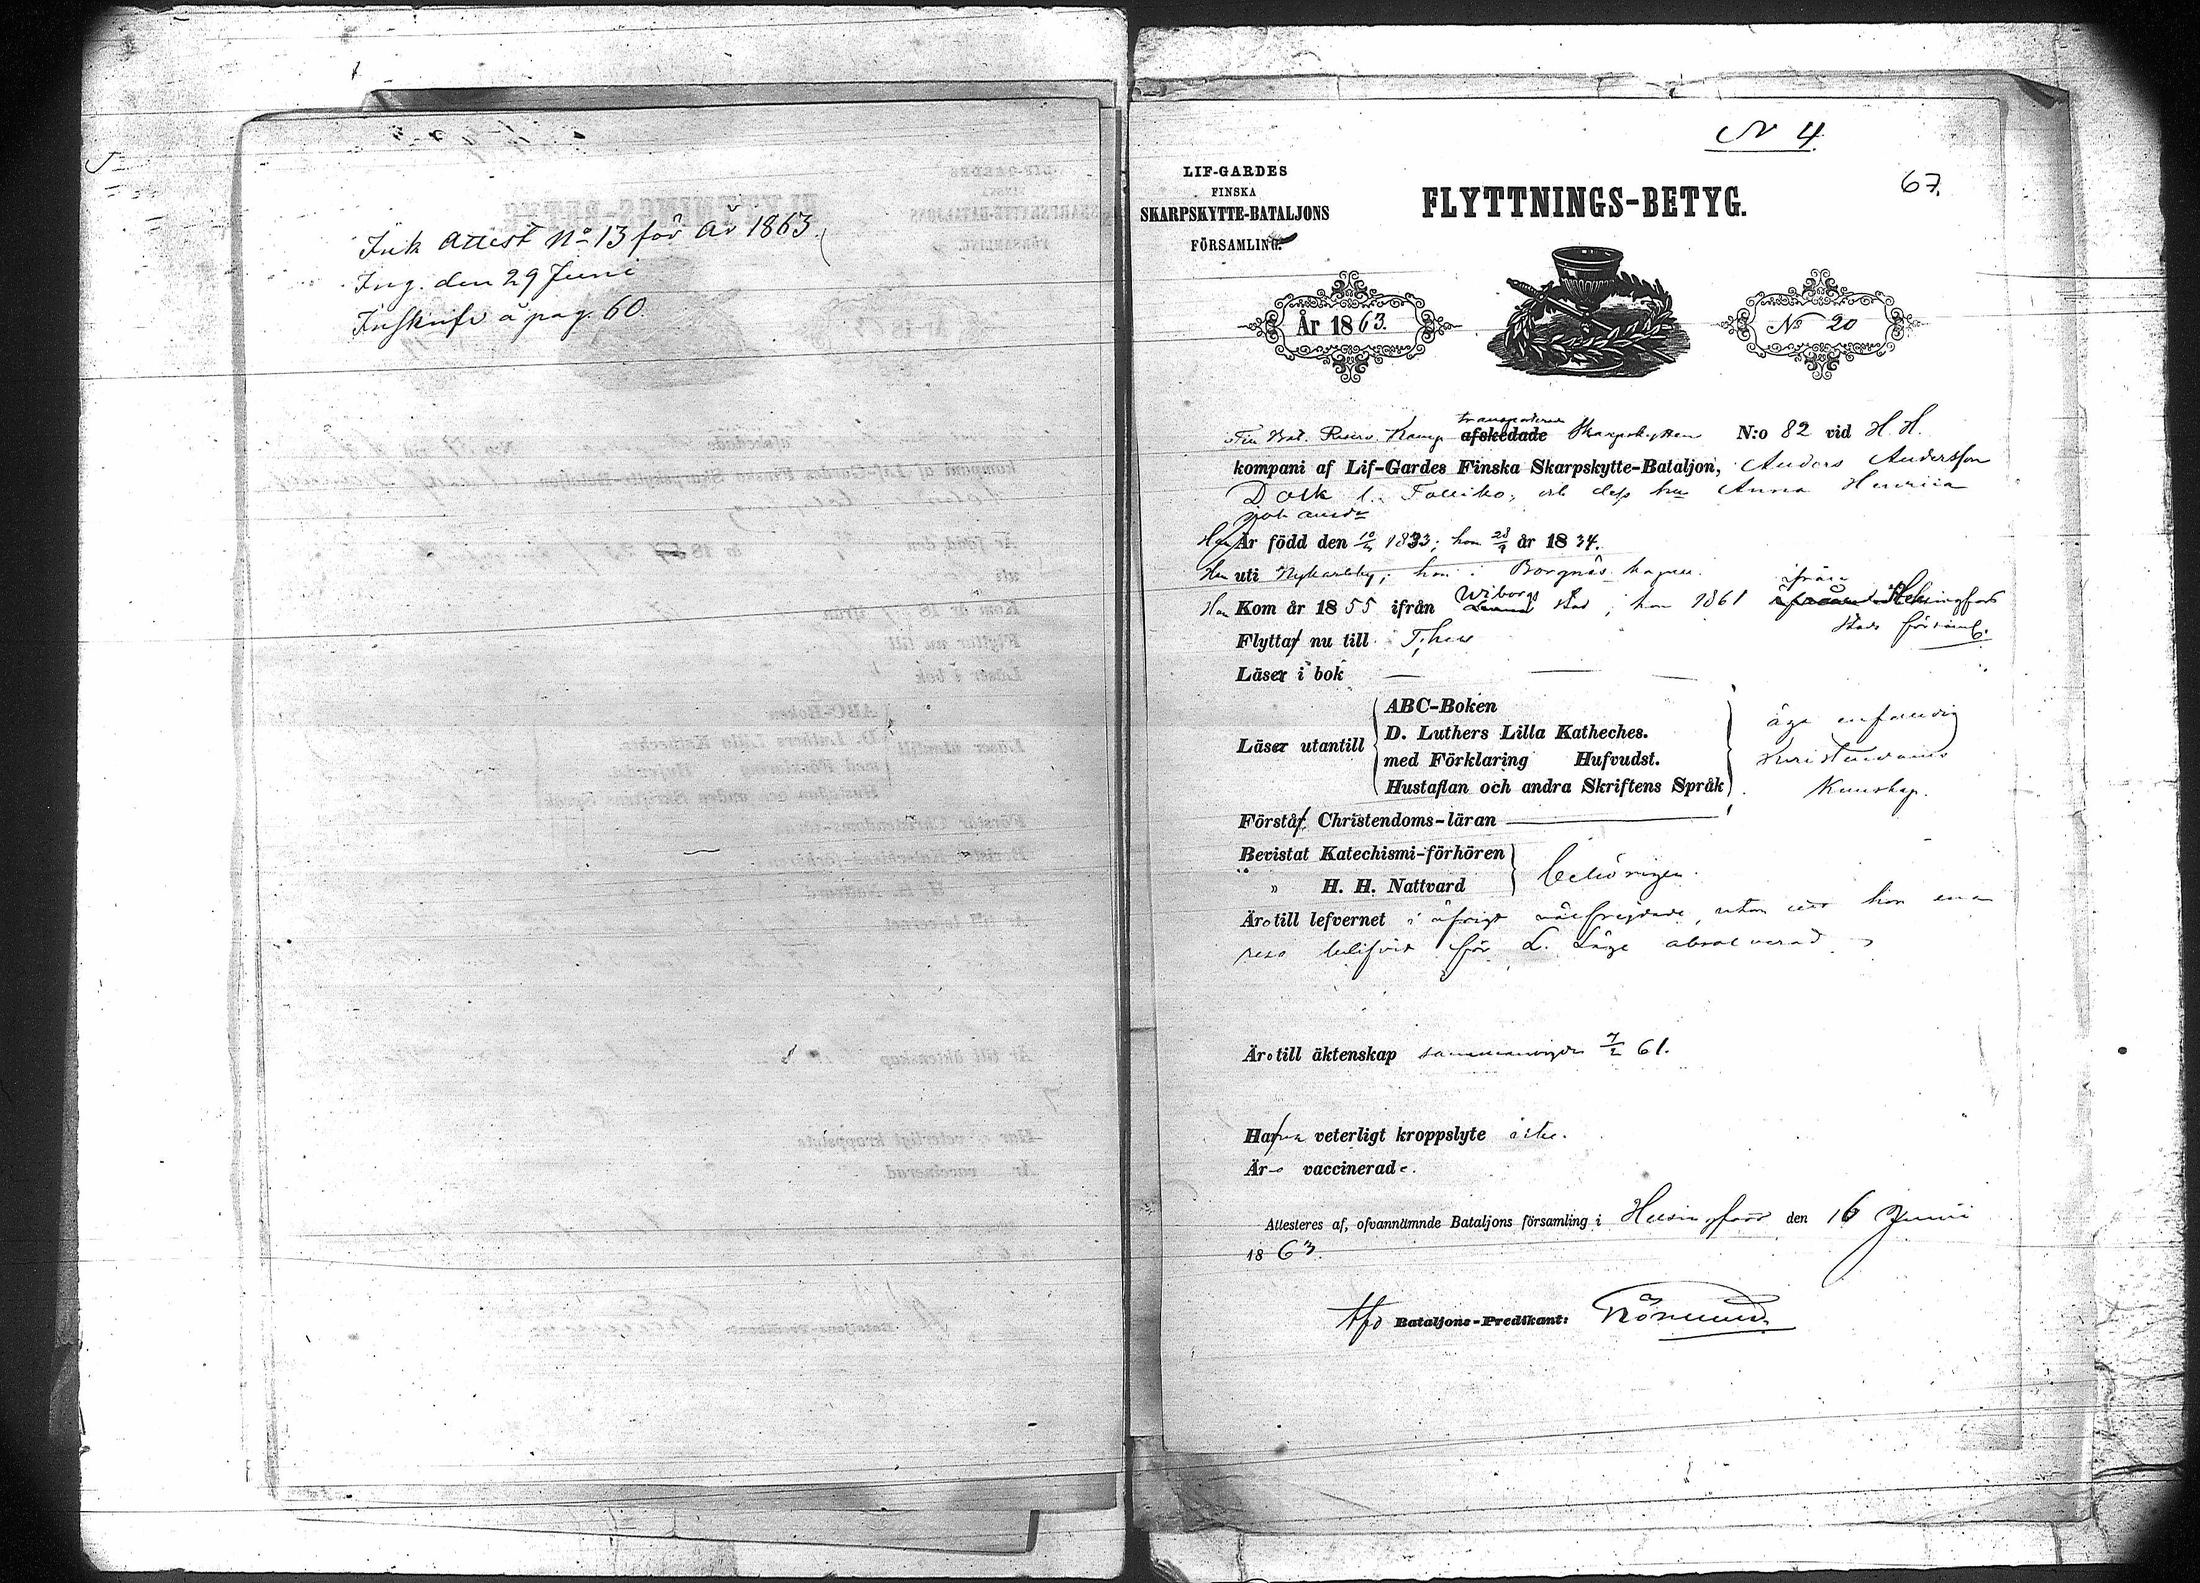 Ink Attest No 13 för år 1863.
Ing. den 29 Juni
Inskrifv. å pag. 60.
N 4
67.
LIF-GARDES
FINSKA
SKARPSKYTTE-BATALJONS
FÖRSAMLING.
FLYTTNINGS-BETYG.
År 1863.
No 20
transporterade
Res. Komp. afskedade Skarpskytten N:o 82 vid H. H.
kompani af Lif-Gardes Finska Skarpskytte-Bataljon, Anders Andersson
Dolk och dess hu Anna
Han Är född den 1833; hon 28/9 år 1834.
Han uti Nykarleby; hon i Borgnäs kapell.
Wiborgs ifrån
Han Kom år 1855 ifrån stad; hon 1861 Helsingfors
stads församl.
Flytta nu till
Läser i bok — —
ABC-Boken
D. Luthers Lilla Katheches.
Läser utantill med Förklaring Hufvudst.
Hustaflan och andra Skriftens Språk
äga enfaldig
Kristendoms
Kunskap.
Förstå Christendoms-läran
Bevistat Katechismi-förhören
" H. H. Nattvard
behörigen.
Äro till lefvernet i öfrigt välfrejdade, utom att hon en
resa blifvit för L. Läge absolverad
Äro till äktenskap sammanvigde 7/2 61.
Hafva veterligt kroppslyte icke.
Äro vaccinerade.
Attesteres af, ofvannämnde Bataljons församling i Helsingfors den 16 Junii
1863.
Bataljons-Predikant: